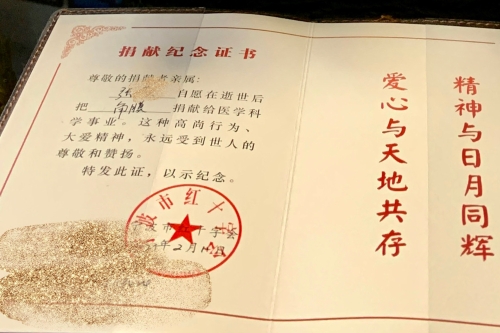 捐献纪念证书
尊敬的捐献者亲属:
张 自愿在逝世后
把 角膜 捐献给医学科
学事业。这种高尚行为、
大爱精神,永远受到世人的
尊敬和赞扬。
特发此证,以示纪念。
波市红十字会
市红十字会
年2月1
爱心与天地共存
精神与日月同辉